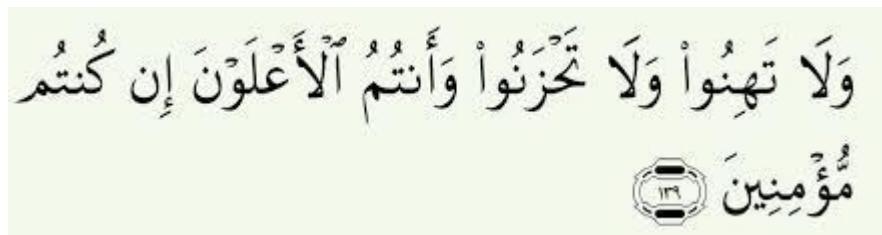 وَلَا تَهِنُوا۟ وَلَا تَحْزَنُوا۟ وَأَنتُمُ ٱلْأَعْلَوْنَ إِن كُنتُم
مُّؤْمِنِينَ ١٣٩